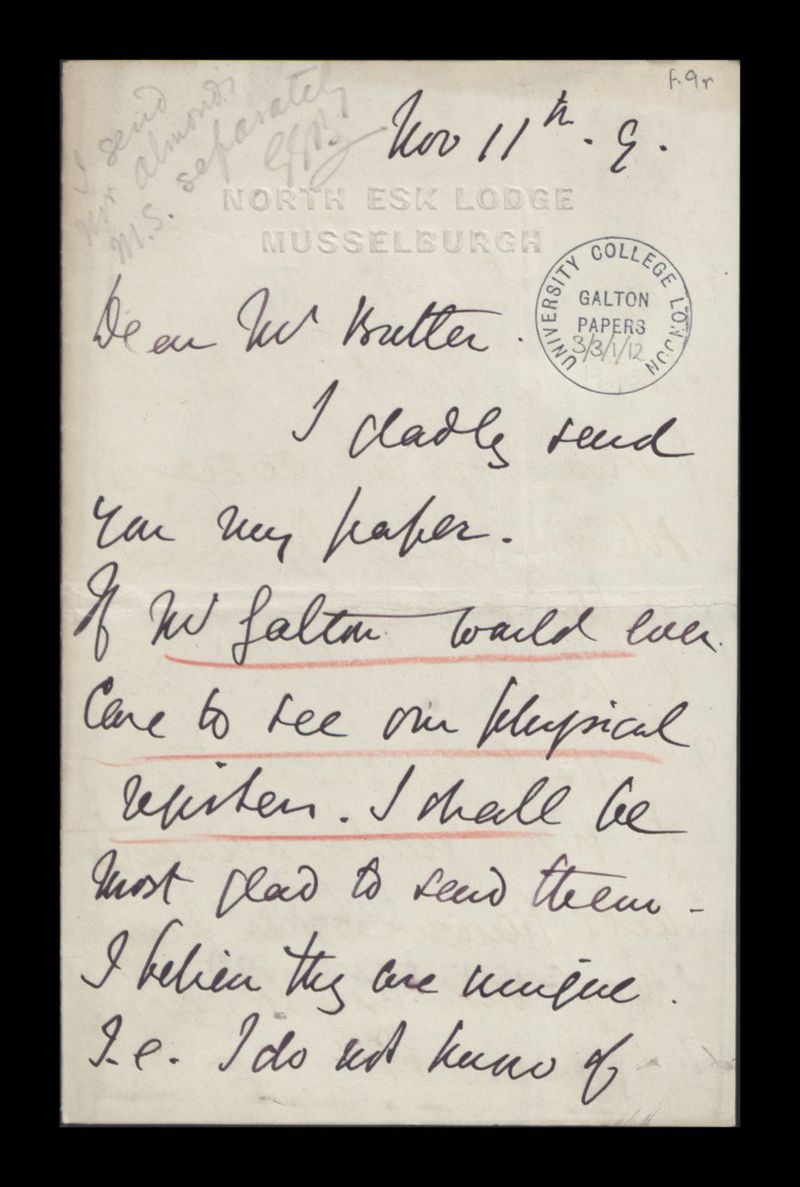 f.9r
I send
Mr Almond's
M.S. separately
Nov 11th. 9.
NORTH ESK LODGE
MUSSELBURGH
UNIVERSITY COLLEGE LONDON
GALTON
PAPERS
3/3/1/12
Dear Mr Butler.
I gladly send
you my paper.
If Mr Galton would ever
care to see our physical
registers. I shall be
most glad to send them -
I believe they are unique.
I.e. I do not know of